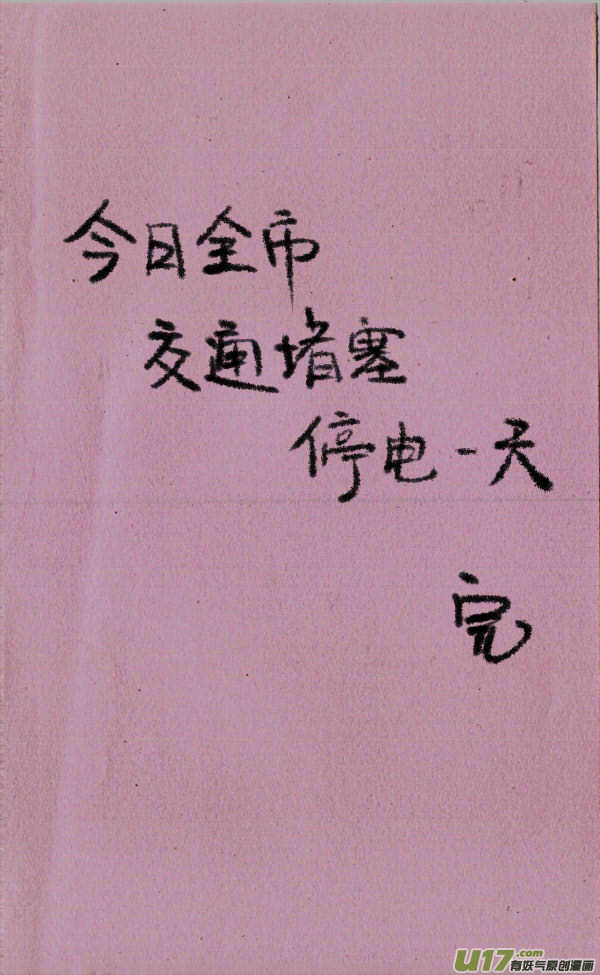 今日全市
交通堵塞
停电一天
完
U17.com
有妖气原创漫画